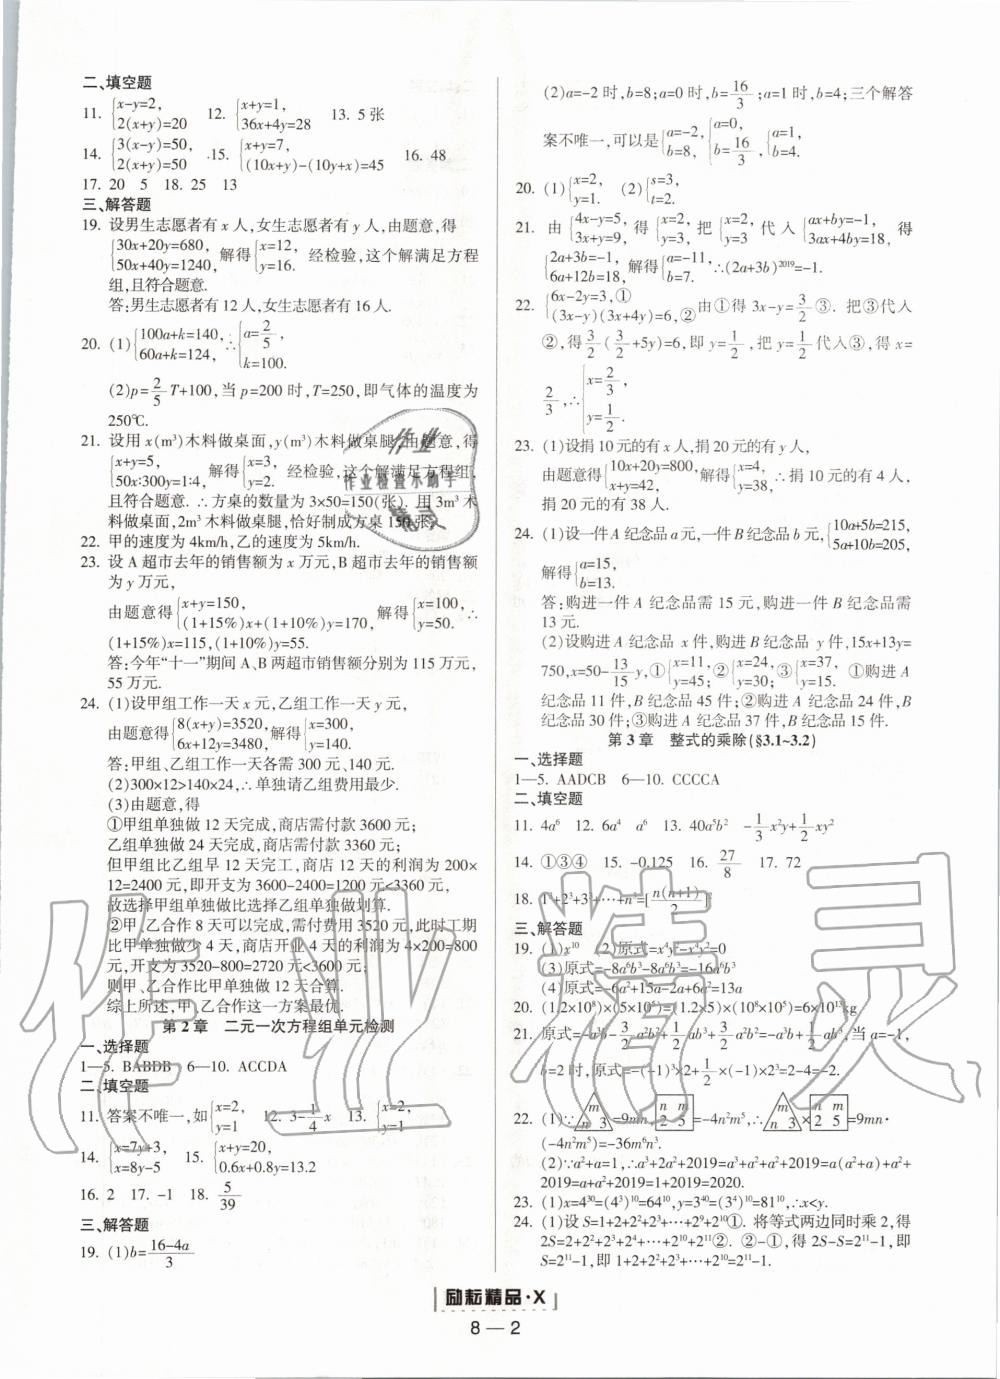 二、填空题
11. {x-y=2, 2(x+y)=20 12. {x+y=1, 36x+4y=28 13. 5 张
14. {3(x-y)=50, 2(x+y)=50 15. {x+y=7, (10x+y)-(10y+x)=45 16. 48
17. 20 5 18. 25 13
三、解答题
19. 设男生志愿者有 x 人,女生志愿者有 y 人,由题意,得
{30x+20y=680, 50x+40y=1240, 解得{x=12, y=16. 经检验,这个解满足方程
组,且符合题意.
答:男生志愿者有 12 人,女生志愿者有 16 人.
20. (1){100a+k=140, 60a+k=124, ∴{a=2/5, k=100.
(2)p=2/5T+100,当 p=200 时,T=250,即气体的温度为
250℃.
21. 设用 x(m³)木料做桌面,y(m³)木料做桌腿,由题意,得
{x+y=5, 50x:300y=1:4, 解得{x=3, y=2. 经检验,这个解满足方程组,
且符合题意. ∴方桌的数量为 3×50=150(张). 用 3m³ 木
料做桌面,2m³ 木料做桌腿,恰好制成方桌 150 张.
22. 甲的速度为 4km/h,乙的速度为 5km/h.
23. 设 A 超市去年的销售额为 x 万元,B 超市去年的销售额
为 y 万元,
由题意得{x+y=150, (1+15%)x+(1+10%)y=170, 解得{x=100, y=50. ∴
(1+15%)x=115,(1+10%)y=55.
答:今年“十一”期间 A、B 两超市销售额分别为 115 万元,
55 万元.
24. (1)设甲组工作一天 x 元,乙组工作一天 y 元,
由题意得{8(x+y)=3520, 6x+12y=3480, 解得{x=300, y=140.
答:甲组、乙组工作一天各需 300 元、140 元.
(2)300×12>140×24,∴单独请乙组费用最少.
(3)由题意,得
①甲组单独做 12 天完成,商店需付款 3600 元;
乙组单独做 24 天完成,商店需付款 3360 元;
但甲组比乙组早 12 天完工,商店 12 天的利润为 200×
12=2400 元,即开支为 3600-2400=1200 元<3360 元,
故选择甲组单独做比选择乙组单独做划算.
②甲、乙合作 8 天可以完成,需付费用 3520 元,此时工期
比甲单独做少 4 天,商店开业 4 天的利润为 4×200=800
元,开支为 3520-800=2720 元<3600 元;
则甲、乙合作比甲单独做 12 天合算.
综上所述,甲、乙合作这一方案最优.
第 2 章 二元一次方程组单元检测
一、选择题
1—5. BABDB 6—10. ACCDA
二、填空题
11. 答案不唯一,如{x=2, y=1 12. 3-1/4x 13. {x=2, y=1
14. {x=7y+3, x=8y-5 15. {x+y=20, 0.6x+0.8y=13.2
16. 2 17. -1 18. 5/39
三、解答题
19. (1)b=(16-4a)/3
(2)a=-2 时,b=8;a=0 时,b=16/3;a=1 时,b=4;三个解答
案不唯一,可以是{a=-2, b=8, {a=0, b=16/3, {a=1, b=4.
20. (1){x=2, y=1. (2){s=3, t=2.
21. 由{4x-y=5, 3x+y=9, 得{x=2, y=3, 把{x=2, y=3 代入{ax+by=-1, 3ax+4by=18, 得
{2a+3b=-1, 6a+12b=18, 解得{a=-11, b=7. ∴(2a+3b)²⁰¹⁹=-1.
22. {6x-2y=3,① (3x-y)(3x+4y)=6,② 由①得 3x-y=3/2③. 把③代入
②,得3/2(3/2+5y)=6,即 y=1/2,把 y=1/2代入③,得 x=
2/3,∴{x=2/3, y=1/2.
23. (1)设捐 10 元的有 x 人,捐 20 元的有 y 人,
由题意得{10x+20y=800, x+y=42, 解得{x=4, y=38. ∴捐 10 元的有 4 人,
捐 20 元的有 38 人.
24. (1)设一件A纪念品a元,一件B纪念品b元,{10a+5b=215, 5a+10b=205,
解得{a=15, b=13.
答:购进一件 A 纪念品需 15 元,购进一件 B 纪念品需
13 元.
(2)设购进 A 纪念品 x 件,购进 B 纪念品 y 件,15x+13y=
750,x=50-13/15y,①{x=11, y=45; ②{x=24, y=30; ③{x=37, y=15. ①购进 A
纪念品 11 件,B 纪念品 45 件;②购进 A 纪念品 24 件,B
纪念品 30 件;③购进 A 纪念品 37 件,B 纪念品 15 件.
第 3 章 整式的乘除(§3.1~3.2)
一、选择题
1—5. AADCB 6—10. CCCCA
二、填空题
11. 4a⁶ 12. 6a⁴ a⁶ 13. 40a⁵b² -1/3x²y+1/2xy²
14. ①③④ 15. -0.125 16. 27/8 17. 72
18. 1³+2³+3³+…+n³=[n(n+1)/2]²
三、解答题
19. (1)x¹⁰ (2)原式=x⁴y²-x⁴y²=0
(3)原式=-8a⁶b³-8a⁶b³=-16a⁶b³
(4)原式=-6a²+15a-2a+6a²=13a
20. (1.2×10⁸)×(5×10⁵)=(1.2×5)×(10⁸×10⁵)=6×10¹³kg
21. 原式=-a³b-3/2a²b²+1/2ab³+3/2a²b²=-a³b+1/2ab³,当 a=-1,
b=2 时,原式=-(-1)³×2+1/2×(-1)×2³=2-4=-2.
22. (1)∵ m n 3 =9mn, n m 2 5 =-4n²m⁵,∴ m n 3 × n m 2 5 =9mn·
(-4n²m⁵)=-36m⁶n³.
(2)∵a²+a=1,∴a³+2a²+2019=a³+a²+a²+2019=a(a²+a)+a²+
2019=a+a²+2019=1+2019=2020.
23. (1)x=4³⁰=(4³)¹⁰=64¹⁰,y=3⁴⁰=(3⁴)¹⁰=81¹⁰,∴x<y.
24. (1)设 S=1+2+2²+2³+…+2⁹+2¹⁰①. 将等式两边同时乘 2,得
2S=2+2²+2³+2⁴+…+2¹⁰+2¹¹②. ②-①,得 2S-S=2¹¹-1,即
S=2¹¹-1,即 1+2+2²+2³+…+2¹⁰=2¹¹-1.
励耘精品·X
8—2
作业
作业检查小助手
精灵
作业精灵